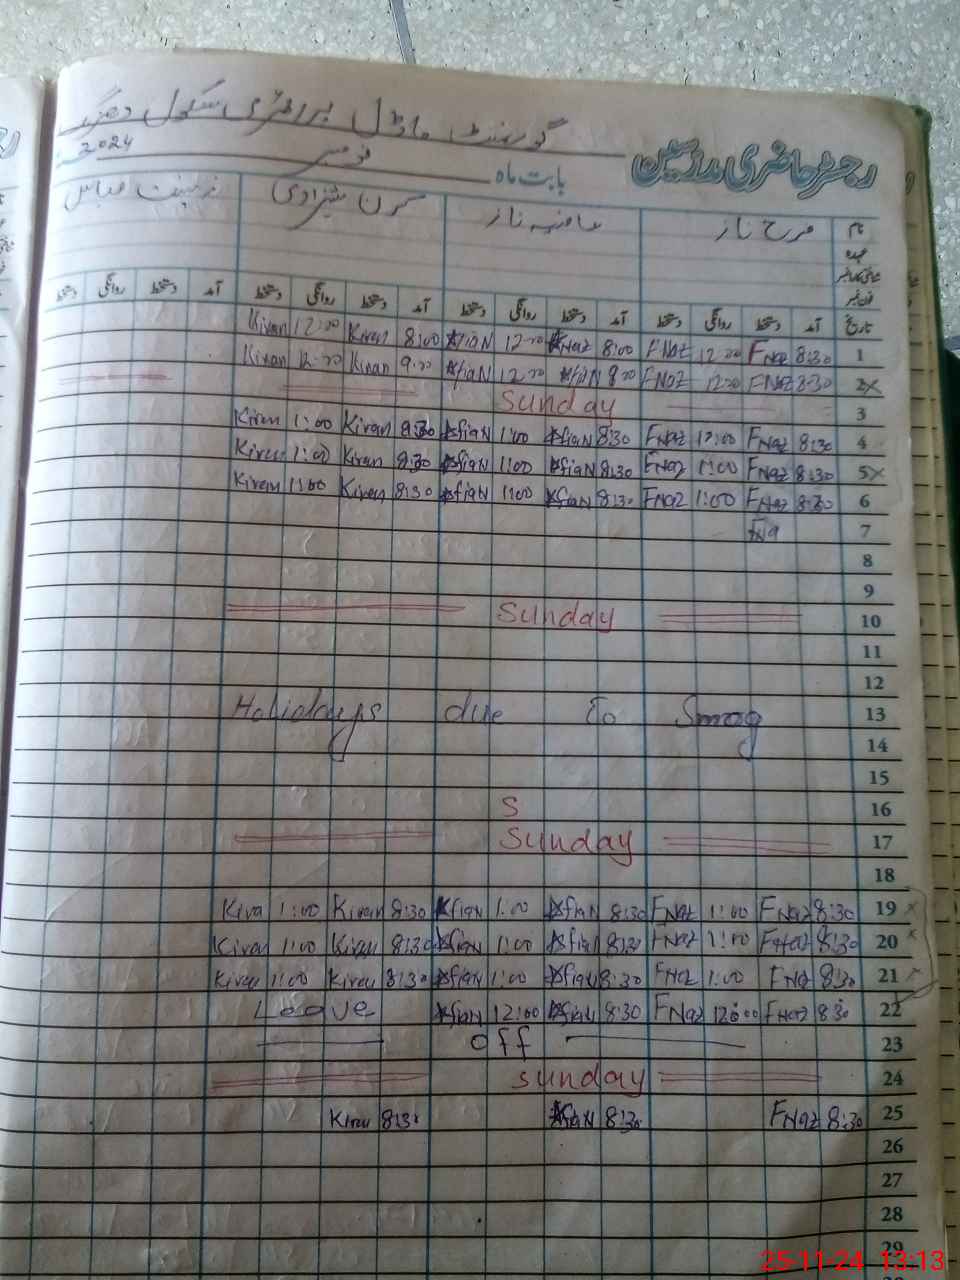 رجسٹر حاضری مدرسین
گورنمنٹ ماڈل پرائمری سکول
بابت ماہ نومبر 2024
نام فرح ناز عافیہ ناز کرن شہزادی زینت عباس
عہدہ
شناختی کارڈ نمبر
فون نمبر
تاریخ آمد دستخط روانگی دستخط آمد دستخط روانگی دستخط آمد دستخط روانگی دستخط آمد دستخط روانگی دستخط
Kiran 12:00 Kiran 8:00 AfiaN 12:00 8:00 FNaz 12:00 FNaz 8:30 1
Kiran 12:00 Kiran AfiaN 12:00 AfiaN FNaz 12:00 FNaz 8:30 2x
Sunday 3
Kiran 1:00 Kiran 8:30 AfiaN 1:00 AfiaN 8:30 FNaz FNaz 8:30 4
Kiran 1:00 Kiran 8:30 AfiaN 1:00 AfiaN 8:30 FNaz 1:00 FNaz 8:30 5x
Kiran 1:00 Kiran 8:30 AfiaN 1:00 AfiaN 8:30 FNaz 1:00 FNaz 8:30 6
7
8
9
Sunday 10
11
12
Holidays due To Smog 13
14
15
S 16
Sunday 17
18
Kira 1:00 Kiran 8:30 AfiaN 1:00 AfiaN 8:30 FNaz 1:00 FNaz 8:30 19 x
Kiran 1:00 Kiran 8:30 AfiaN 1:00 AfiaN 8:30 FNaz 1:00 FNaz 8:30 20 x
Kiran 1:00 Kiran 8:30 AfiaN 1:00 AfiaN 8:30 FNaz 1:00 FNaz 8:30 21 x
Leave AfiaN 12:00 AfiaN 8:30 FNaz 12:00 FNaz 8:30 22
off 23
Sunday 24
Kiran 8:30 AfiaN 8:30 FNaz 8:30 25
26
27
28
29
25-11-24 13:13